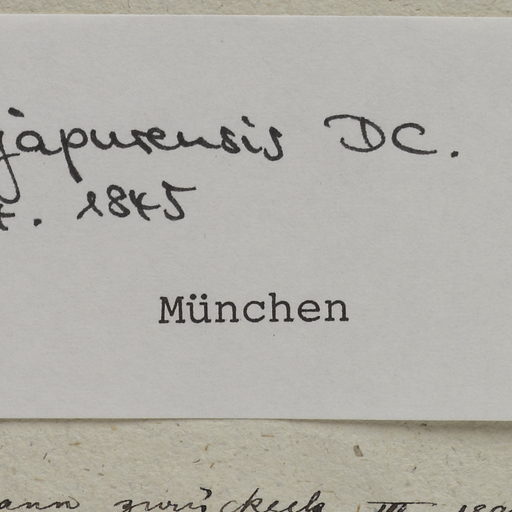 japurensis DC.
t. 1845
München
ann zurück III